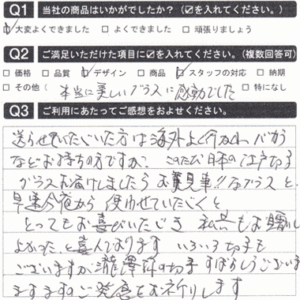 Q1 当社の商品はいかがでしたか?(☑を入れてください。)
☑大変よくできました □よくできました □頑張りましょう
Q2 ご満足いただけた項目に☑を入れてください。(複数回答可)
□価格 □品質 ☑デザイン □商品 ☑スタッフの対応 □納期
□その他( 本当に美しいグラスに感動でした ) □特になし
Q3 ご利用にあたってご感想をおよせください。
送らせていただいた方は海外よく行かれ
などお持ちの方ですが、この 日本の江戸切子
グラスお届けしましたら お見事!!なグラスと
早速今夜から 使わせていただくと
とってもお喜びいただき 私共もお
よかったと喜んでおります いろいろ切子も
ございますが すばらしうござい
ますますのご発展をお祈りします